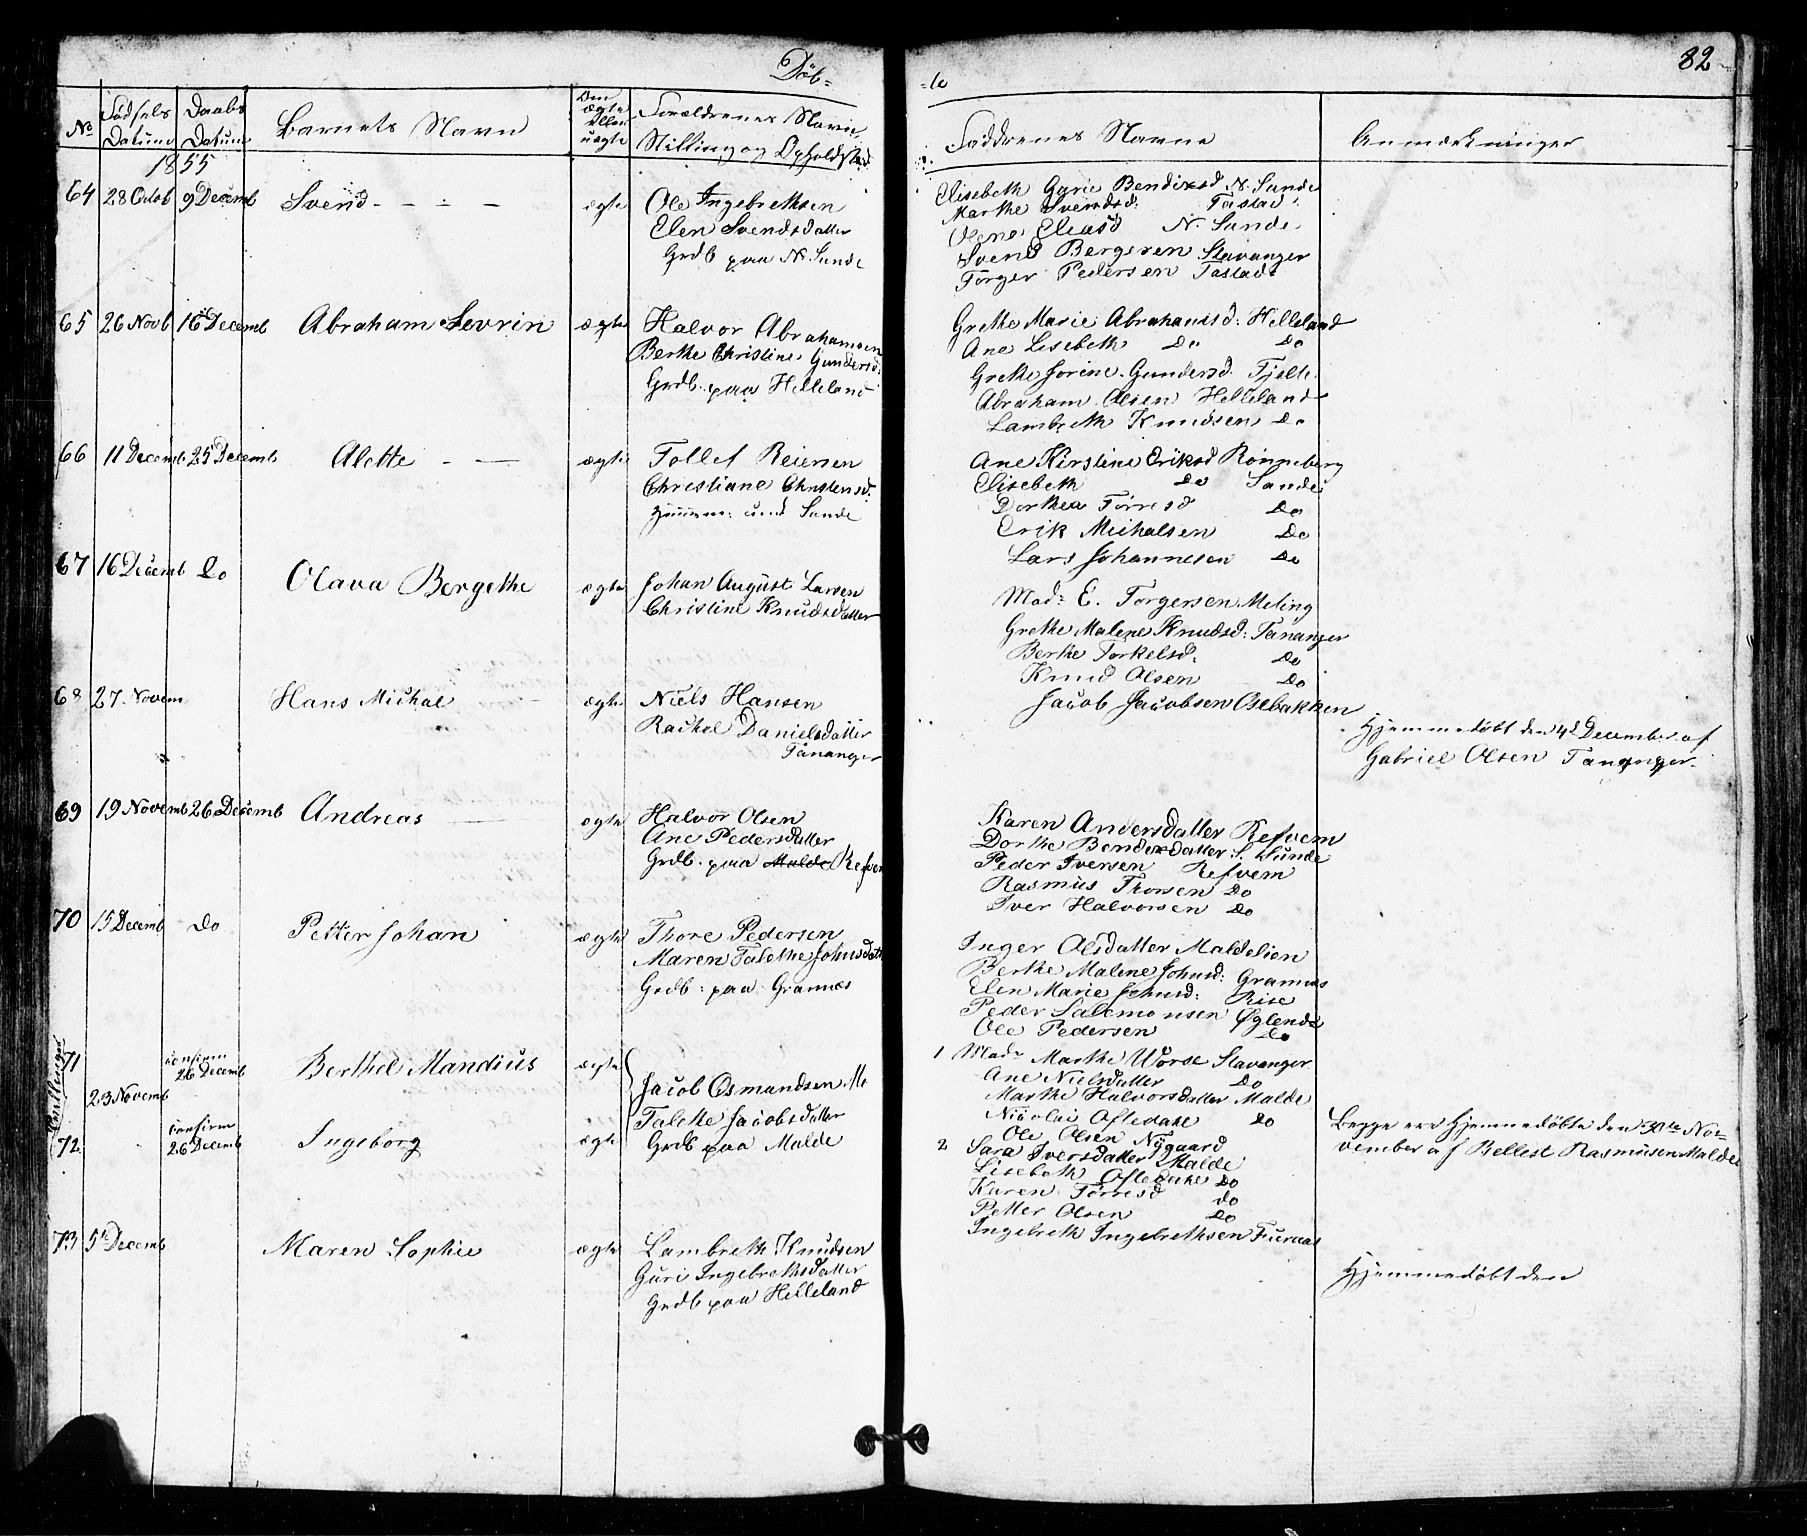 Döb-
-te
82
No
Födsels Datum
Daabs Datum
Barnets Navn
Om ægte eller uægte
Forældrenes Navne, Stilling og Opholdsted
Faddrenes Navne
Anmærkninger
1855
64 28 Octob 9 Decemb Svend - - - - ægte
Ole Ingebrethsen
Elen Svendsdatter
Grdb paa N. Sunde
Elisebeth Garie Bendixsd N. Sunde
Marthe Svendsd: Tastad
Olene Eliasd N. Sunde
Svend Bergesen Stavanger
Törger Pedersen Tastad
65 26 Novb 16 Decemb Abraham Sevrin ægte
Halvor Abrahamsen
Berthe Christine Gundersd:
Grdb. paa Helleland
Grethe Marie Abrahamsd: Helleland
Ane Lisebeth Do Do
Grethe Jorine Gundersd. Tjelte
Abraham Olsen Helleland
Lambreth Knudsen Do
66 11 Decemb 25 Decemb Alette - — ægte
Tollef Reiersen
Christiane Christensd.
Sunde
Ane Kirstine Eriksd Rönneberg
Elisebeth Do Sande
Dorthea Torresd Do
Erik Michalsen Do
Lars Johannesen Do
67 16 Decemb Do Olava Bergethe ægte
Johan August Larsen
Christine Knudsdatter
Mad: E. Torgersen Meling
Grethe Malene Knudsd: Tananger
Berthe Torkelsd. Do
Knud Olsen Do
Jacob Jacobsen Osebakken
68 27. Novem Hans Michae ægte
Niels Hansen
Rachel Danielsdatter
Tananger
Hjemmedöbt den 4d December af
Gabriel Olsen Tananger.
69 19 Novemb 26 Decemb Andreas — ægte
Halvor Olsen
Ane Pedersdatter
Grdb. paa Malde Refvem
Karen Andersdatter Refvem
Dorthe Bendixdatter S. Sunde
Peder Iversen Refvem
Rasmus Thorsen Do
Iver Halvorsen Do
70 15 Decemb Do Petter Johan ægte
Thore Pedersen
Maren Talethe Johnsdatt
Grdb: paa Grannes
Inger Olsdatter Maldelien
Berthe Malene Johnsd: Grannes
Elen Marie Johnsd: Rise
Peder Salemonsen Öglend
Ole Pedersen Do
Tvillinger
71 confirm 26 Decemb Berthel Mandius ægte
23 Novemb
72 confirm 26 Decemb Ingeborg ægte
Jacob Osmundsen M
Talethe Jacobsdatter
Grdb paa Malde
1 Mad: Marthe Worse Stavanger
Ane Nielsdatter Do
Marthe Halvorsdatter Malde
Nicolai Oftedahl Do
Ole Olsen Nygaard
2 Sara Iversdatter Malde
Lisebeth Oftedahl Do
Karen Torresd Do
Petter Olsen Do
Ingebreth Ingebrethsen Fuernæs
Begge ere Hjemmedöbte den 30te No-
vember af Rellest Rasmusen Malde
73 5 Decemb Maren Sophie ægte
Lambreth Knudsen
Guri Ingebrethsdatter
Grdb paa Helleland
Hjemmedöbt den